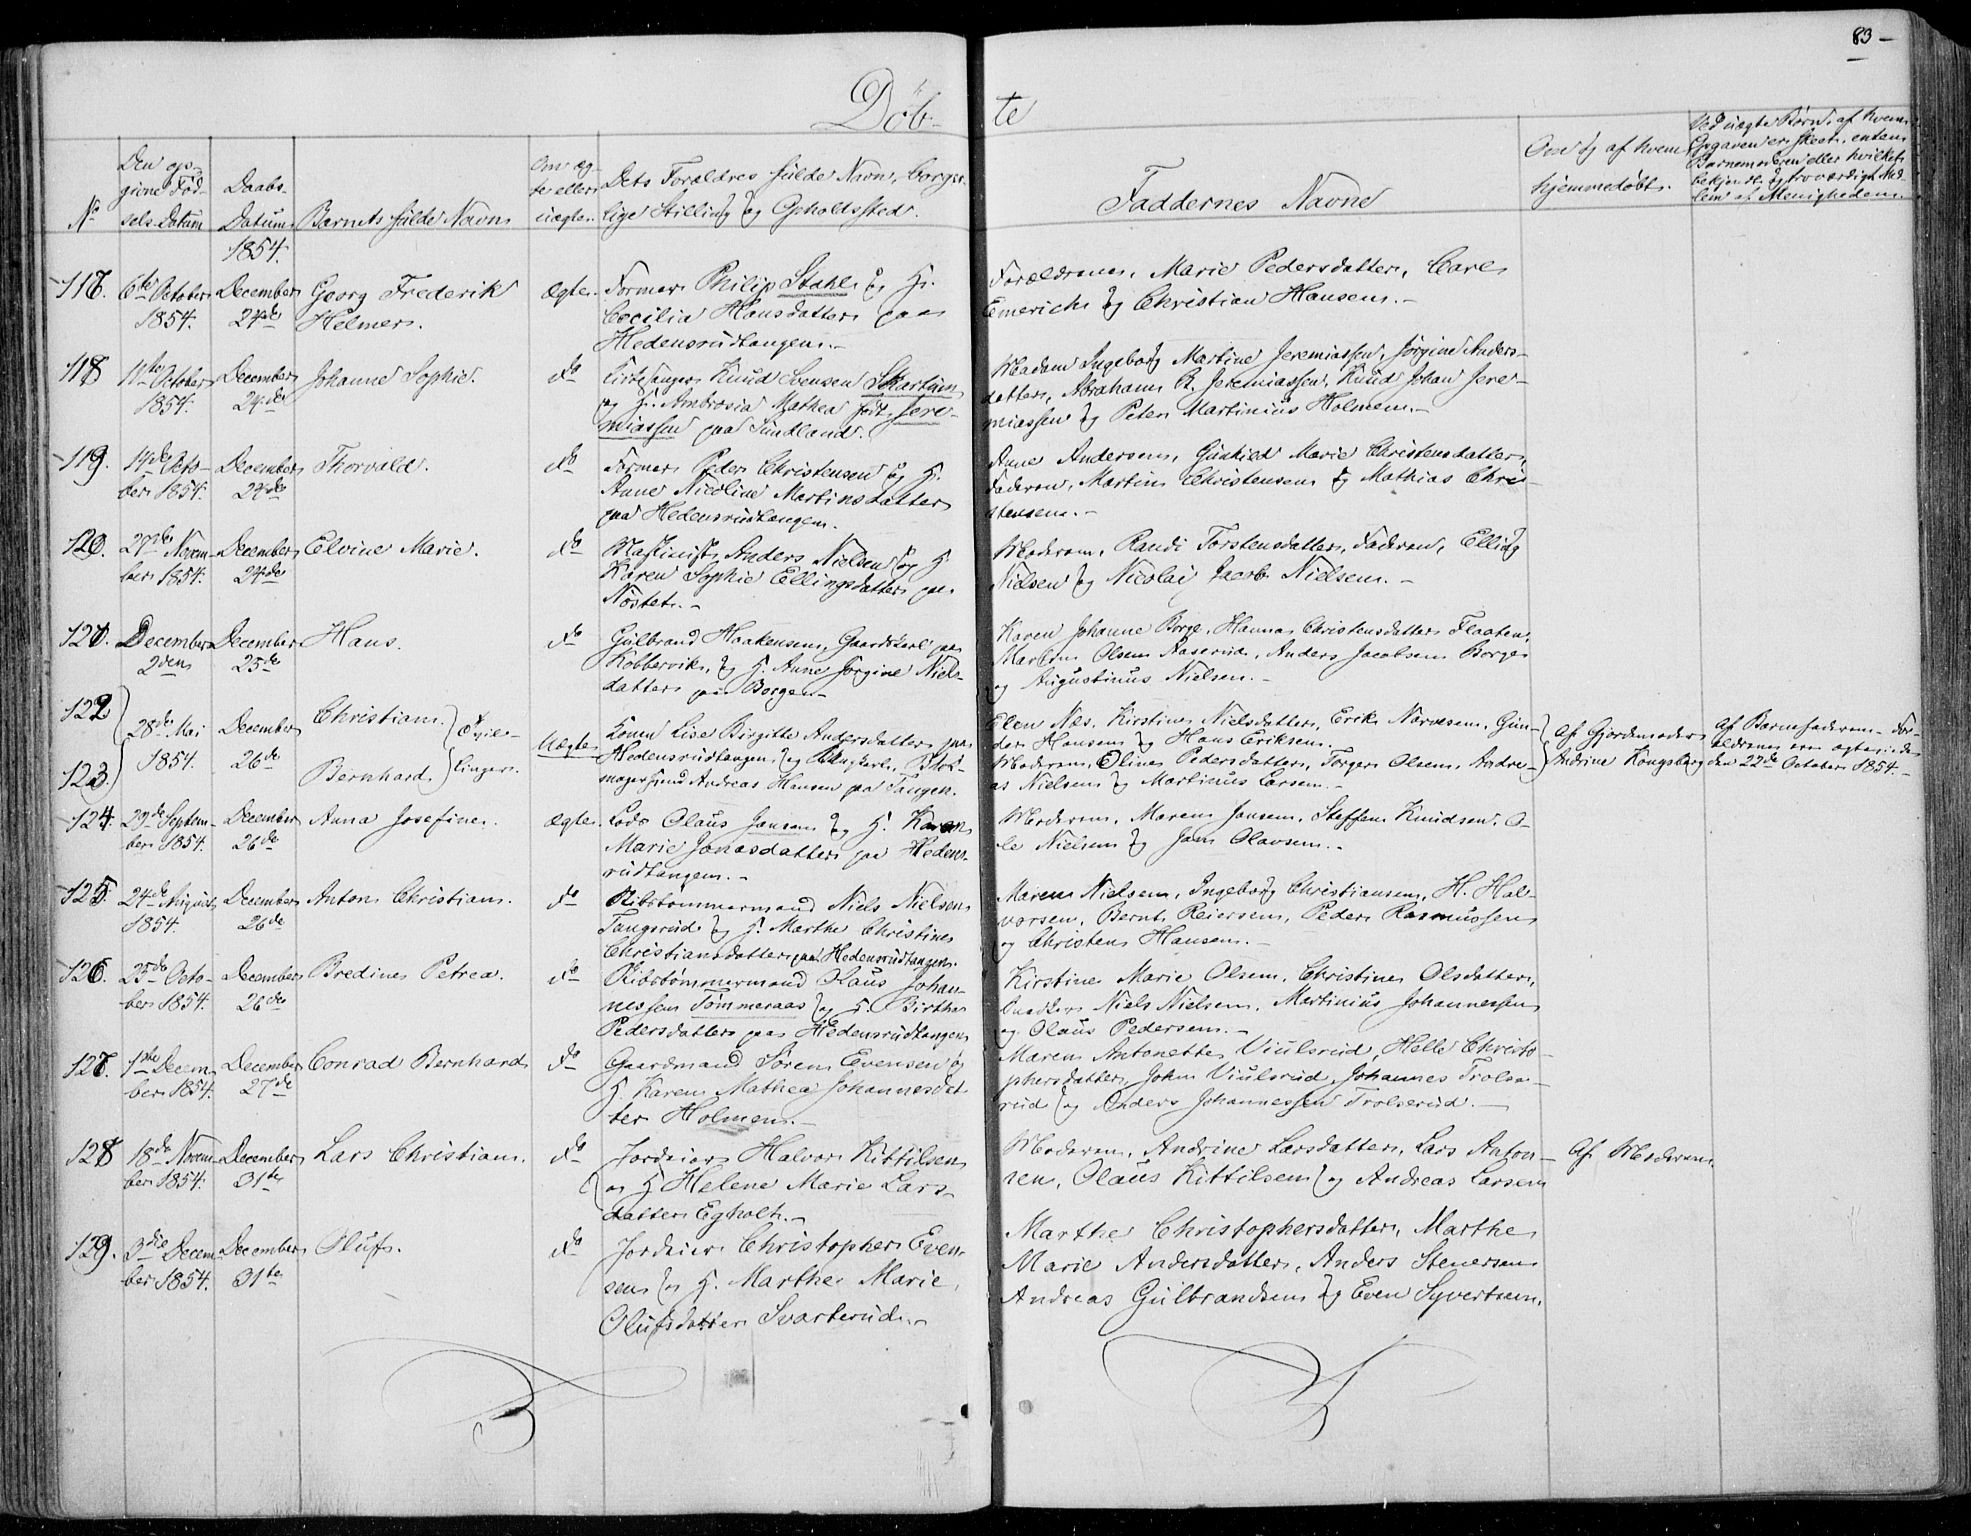 83 –
Døb-
te
No
Den op-
givne Fød-
sels-Datum
Daabs
Datum
1854.
Barnets fulde Navn
Om æg-
te eller
uægte.
Dets Forældres fulde Navn, borger-
lige Stilling og Opholdssted.
Faddernes Navne
Om og af hvem
hjemmedøbt.
Ved uægte Børn, af hvem
Opgaven er skeet, enten
Barnemoderen eller hvilket
bekjendt og troværdigt Med-
lem af Menigheden.
117.
6te October
1854.
December
24de
Georg Frederik
Helmer.
Ægte.
Former Philip Stahl og H.
Cecilia Hansdatter paa
Hedensrudtangen. –
Forældrene, Marie Pedersdatter, Carl
Emerich og Christian Hansen. –
118
11te October
1854.
December
24de
Johanne Sophie.
do
Kirkesanger Knud Svensen Skartum
og H. Ambrosia Mathea født Jere-
miassen paa Sundland.
Madam Ingeborg Martine Jeremiassen, Jørgine Anders-
datter, Abraham B. Jeremiassen, Knud Johan Jere-
miassen og Peter Martinius Holmen. –
119.
14de Octo-
ber 1854.
December
24de
Thorvald.
do
Former Peder Christensen og H.
Anne Nicoline Martinsdatter
paa Hedensrudtangen.
Anne Andersen, Gunhild Marie Christensdatter,
Faderen, Martin Christensen og Mathias Chri-
stensen. –
120.
27de Novem-
ber 1854.
December
24de
Elvine Marie.
do
Maskinist Anders Nielsen og H.
Karen Sophie Ellingsdatter paa
Nøstet. –
Moderen, Randi Torstensdatter, Faderen, Elling
Nielsen og Nicolai Jacob Nielsen. –
121.
December
2den
December
25de
Hans.
do
Gulbrand Haakensen, Gaardskarl paa
Kobbervik, og H. Anne Jorgine Niels-
datter paa Borgen –
Karen Johanne Borge, Hanna Christensdatter Flaaten,
Marten Olsen Aaserud, Anders Jacobsen Borge
og Augustinus Nielsen. –
122
123
28de Mai
1854.
December
26de
Christian.
Bernhard.
Tvil-
linger.
Uægte
Konen Lise Birgitte Andersdatter paa
Hedensrudtangen, og Ungkarl, Blok-
magersvend Andreas Hansen paa Tangen.
Elen Næs, Kirstine Nielsdatter, Erik Narvesen, Gun-
der Hansen og Hans Eriksen.
Moderen, Oline Pedersdatter, Torger Olsen, Andre-
as Nielsen og Martinus Larsen. –
Af Gjordemoder
Andrine Kongsberg
Af Barnefaderen. For-
ældrene ere ægteviede
den 22de October 1854. –
124.
29de Septem-
ber 1854.
December
26de
Anna Josefine.
Ægte.
Lods Olaus Jansen og H. Karen
Marie Jonasdatter paa Hedens-
rudtangen. –
Moderen, Maren Jansen, Steffen Knudsen, O-
le Nielsen og Jan Olavsen. –
125.
24de August
1854.
December
26de
Anton Christian.
do
Skibstømmermand Niels Nielsen
Tangerud og H. Marthe Christine
Christiansdatter paa Hedensrudtangen.
Maren Nielsen, Ingeborg Christiansen, H. Hal-
vorsen, Bernt Reiersen, Peder Rasmussen
og Christen Hansen. –
126.
25de Octo-
ber 1854.
December
26de
Bredine Petrea.
do
Skibstømmermand Klaus Johan-
nessen Tømmeraas og H. Birthe
Pedersdatter paa Hedensrudtangen
Kirstine Marie Olsen, Christine Olsdatter,
Niels Nielsen, Martinius Johannessen
og Olaus Pedersen. –
127.
1ste Decem-
ber 1854.
December
27de
Conrad Bernhard
do
Gaardmand Søren Evensen og
H. Karen Mathea Johannesdat
ter Holmen. –
Maren Antonette Viulsrud, Helle Christo-
phersdatter, John Viulsrud, Johannes Trolse-
rud og Anders Johannessen Trolserud. –
128
18de Novem-
ber 1854.
December
31te
Lars Christian.
do
Jordeier Halvor Kittilsen
og H. Helene Marie Lars-
datter Egholt. –
Moderen, Andrine Larsdatter, Lars Anton-
sen, Olaus Kittilsen og Andreas Larsen
Af Moderen.
129.
3die Decem-
ber 1854.
December
31te
Oluf.
do
Jordeier Christopher Even-
sen og H. Marthe Marie
Olufsdatter Svarterud. –
Marthe Christophersdatter, Marthe
Marie Andersdatter, Anders Stenersen
Andreas Gulbrandsen og Even Syvertsen.